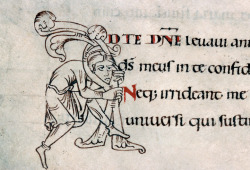 AD TE DN̄E leuaui an
ds̄ meus in te confid
Neq; irrideant me
uniuersi qui susti